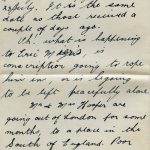 expiry. I.O is the same
date as those received a
couple of days ago.
Oh! what is happening
to Eric is
conscription going to rope
him in, or is he going
to be left peacefully alone
Mr & Mrs Hooper are
going out of London for some
months, to a place in the
South of England. Poor